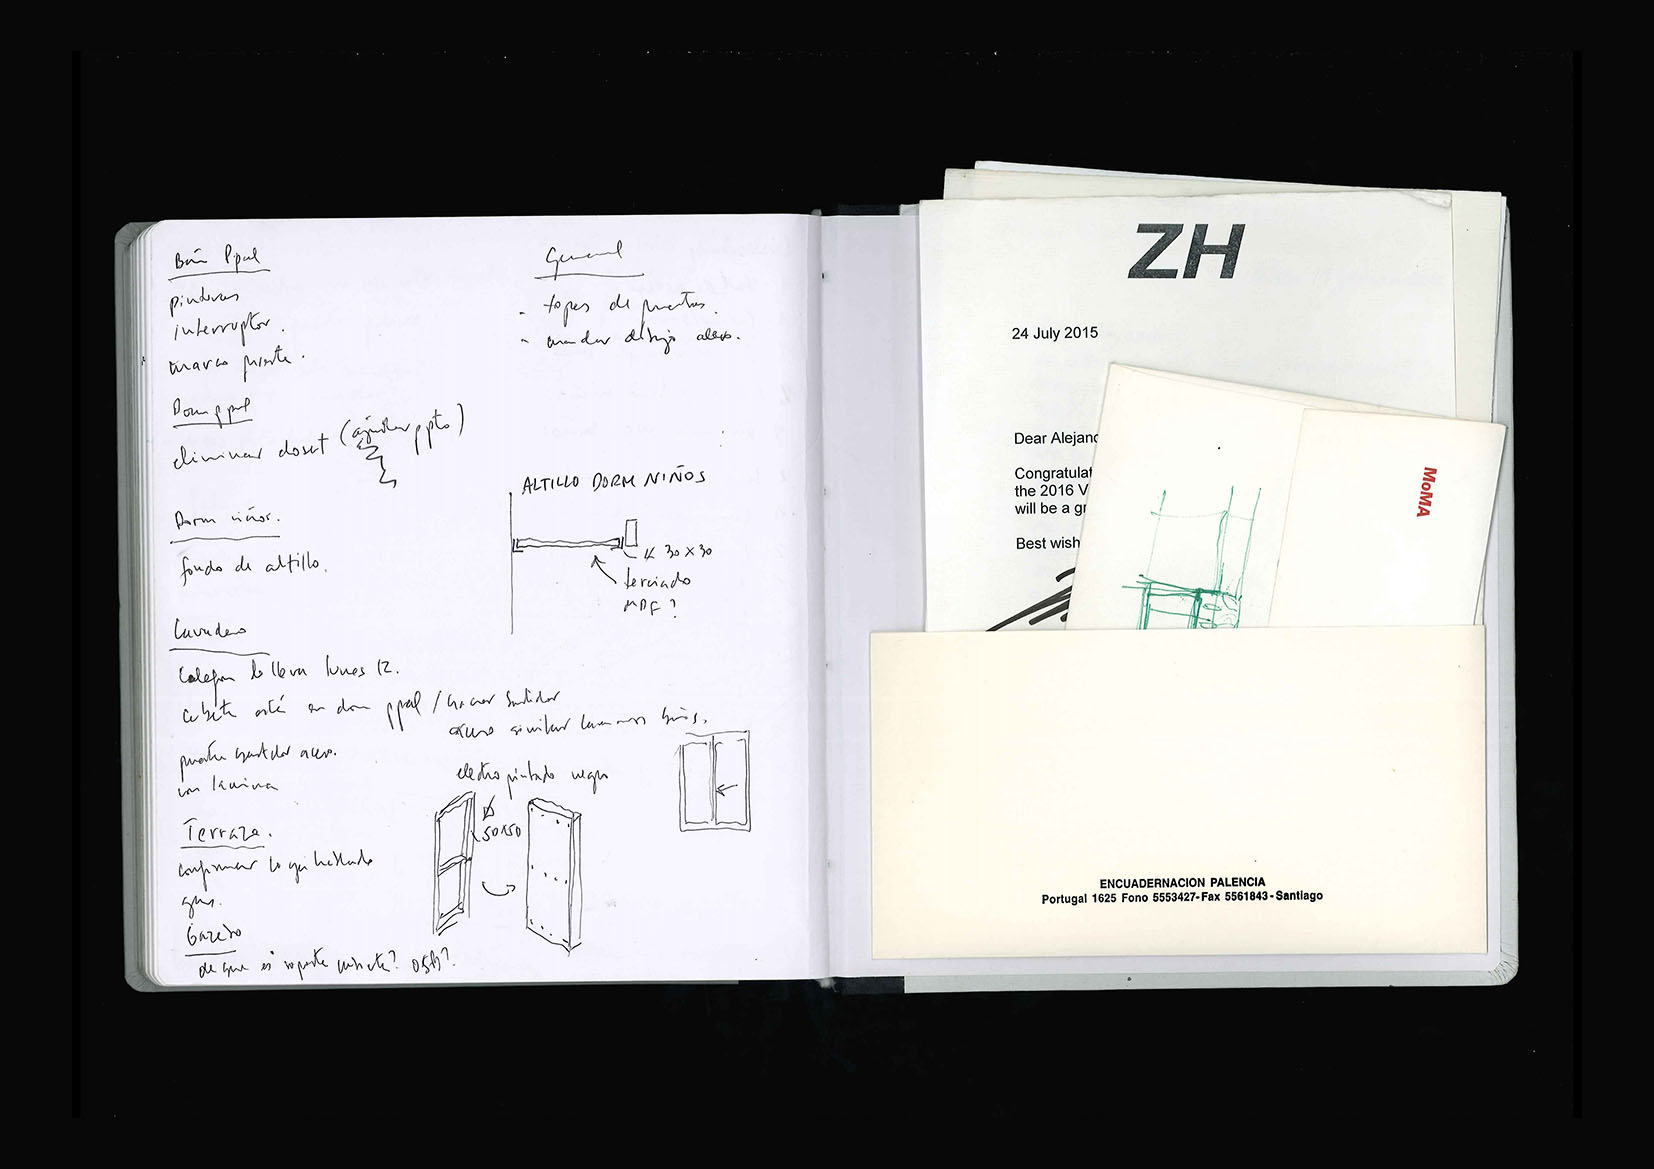 Baño Ppal
pinturas
interruptor.
marco puerta.
Dorm ppal
eliminar closet (ajustar ppto)
Dorm niños.
fondo de altillo.
Lavadero
Calefon lo lleva lunes 12.
cubierta está en dorm ppal / hacer
acero similar baños.
puerta acero.
con lamina
electro pintado negro
50x50
Terraza.
confirmar lo
gas.
de que es soporte cubierta? OSB?
General
- topes de puertas.
- mandar dibujo
ALTILLO DORM NIÑOS
30 x 30
terciado
MDF?
ZH
24 July 2015
Dear Alejand
Congratulat
the 2016 V
will be a gr
Best wish
MoMA
ENCUADERNACION PALENCIA
Portugal 1625 Fono 5553427-Fax 5561843-Santiago